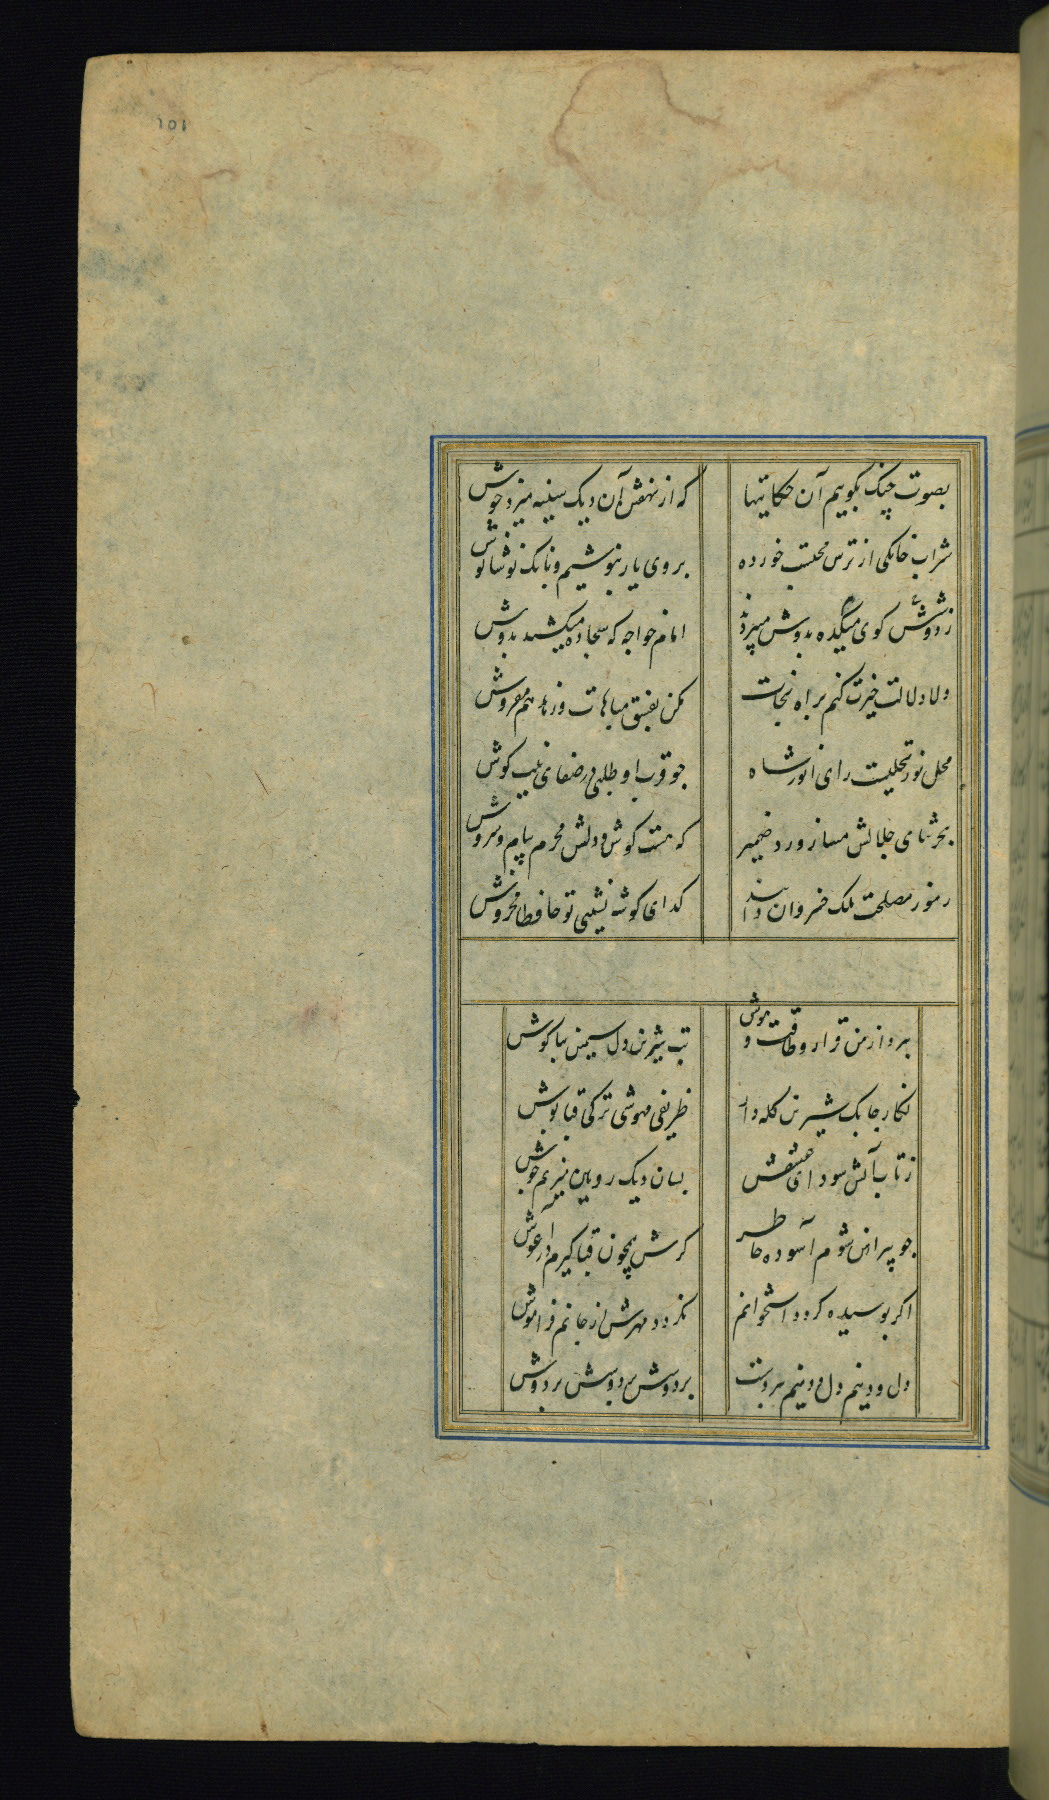 ١٥١
بصوت چنک بکوییم آن حکایتها
که از نهفتن آن دیک سینه میزد جوش
شراب خانکی از ترس محتسب خورده
بروی یار بنوشیم و بانک نوشانوش
ز کوی میکده دوشش بدوش میبردند
امام خواجه که سجاده میکشید بدوش
دلا دلالت خیرت کنم براه نجات
مکن بفسق مباهات و زهد هم مفروش
محل نور تجلیست رای انور شاه
چو قرب او طلبی در صفای نیت کوش
بجز ثنای جلالش مساز ورد ضمیر
که هست کوش دلش محرم پیام سروش
رموز مصلحت ملک خسروان دانند
کدای کوشه نشینی تو حافظا مخروش
ببرد از من قرار و طاقت و هوش
بت شیرین دل سیمین بناکوش
نکار چابک شیرین کله دار
ظریفی مهوشی ترکی قباپوش
ز تاب آتش سودای عشقش
بسان دیک رویین میزنم جوش
چو پیراهن شوم آسوده خاطر
کرش همچون قبا کیرم در آغوش
اکر پوسیده کردد استخوانم
نکردد مهرش از جانم فراموش
دل و دینم دل و دینم ببردست
بر دوشش بر دوشش بر دوش